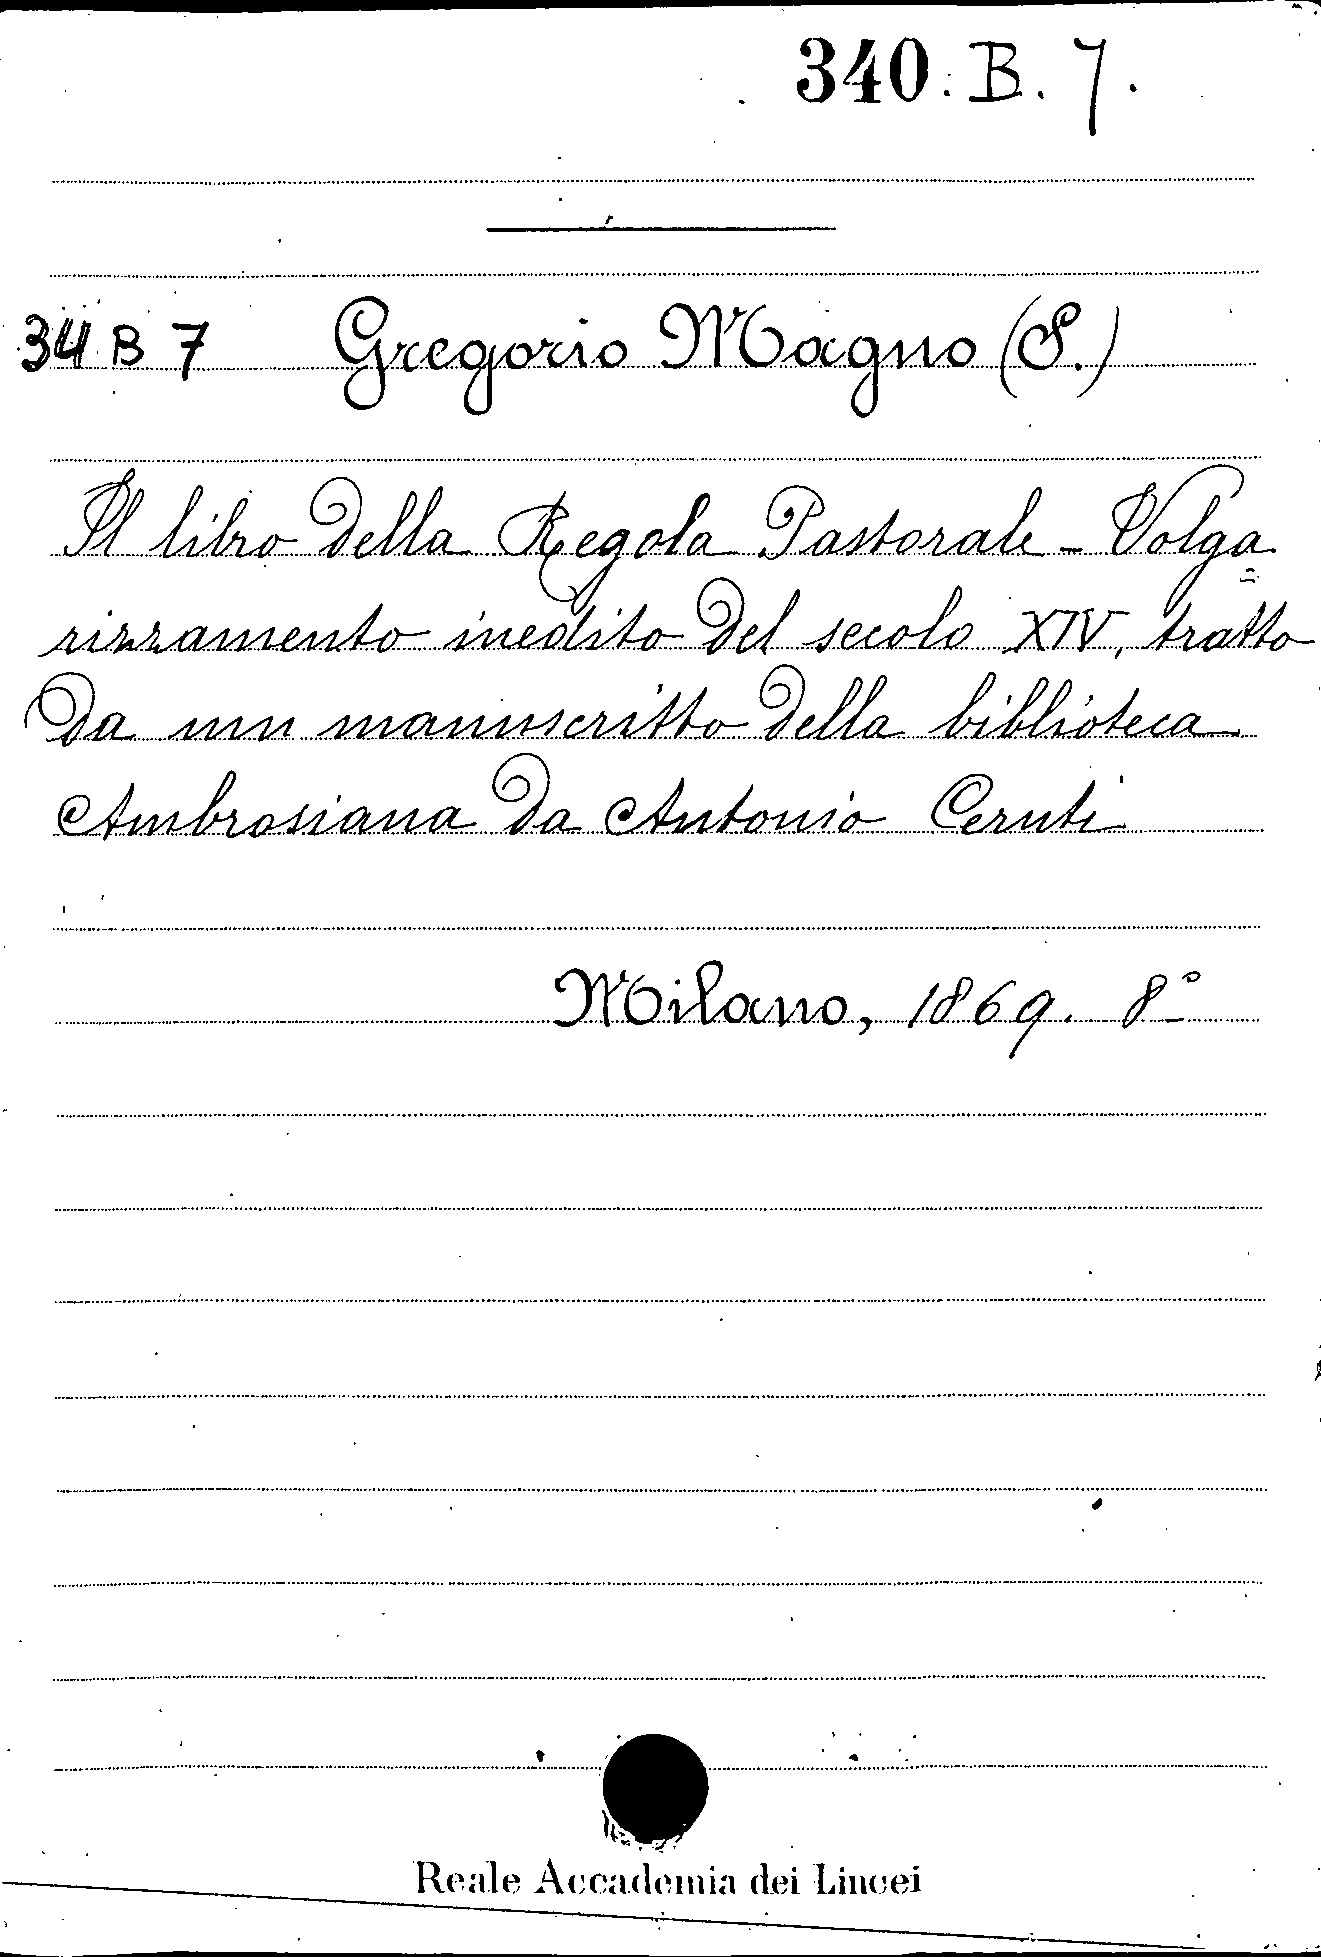 340. B. 7.
34 B 7 Gregorio Magno (S.)
Il libro della Regola Pastorale - Volga=
rizzamento inedito del secolo XIV, tratto
da un manuscritto della biblioteca
Ambrosiana da Antonio Ceruti
Milano, 1869. 8°
Reale Accademia dei Lincei